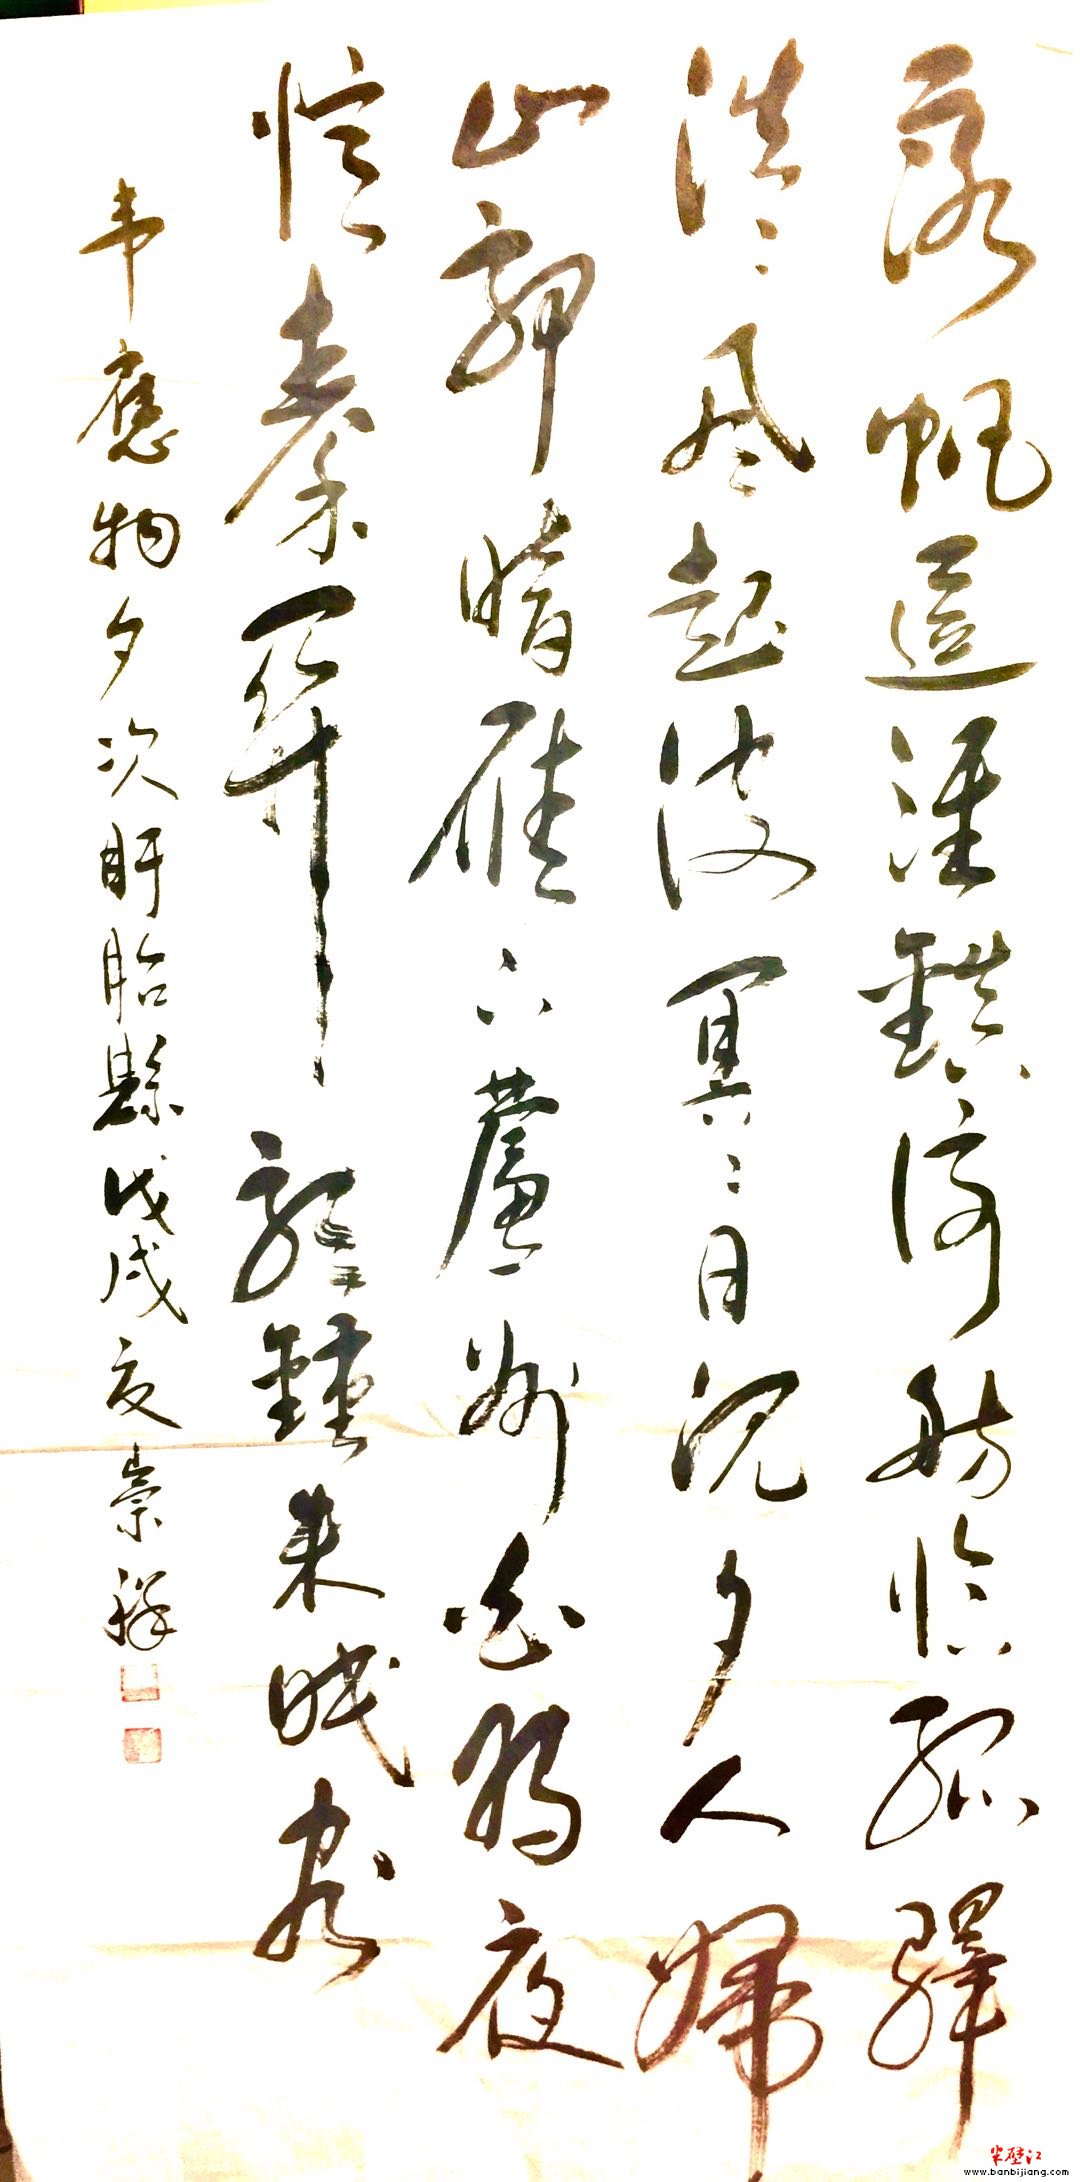 落帆逗淮鎮停舫臨孤驛
浩々風起波冥々日沉夕人歸
山郭暗雁下蘆洲白獨夜
憶秦關聽鍾未眠客
韋應物夕次盱眙縣戊戌夏崇祥
半壁江
www.banbijiang.com